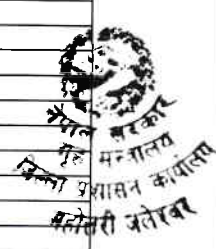 नेपाल सरकार
गृह मन्त्रालय
जिल्ला प्रशासन कार्यालय
महोत्तरी जलेश्वर